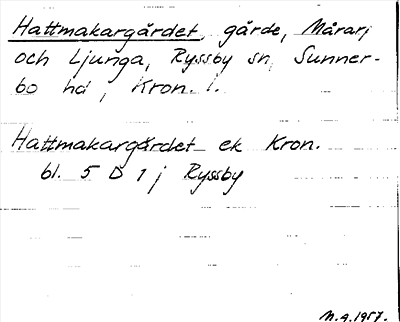 Hattmakargärdet, gärde, Mårarj
och Ljunga, Ryssby sn, Sunner-
bo hd, Kron. l.
Hattmakargärdet ek Kron.
bl. 5 D 1 j Ryssby
N.g. 1957.